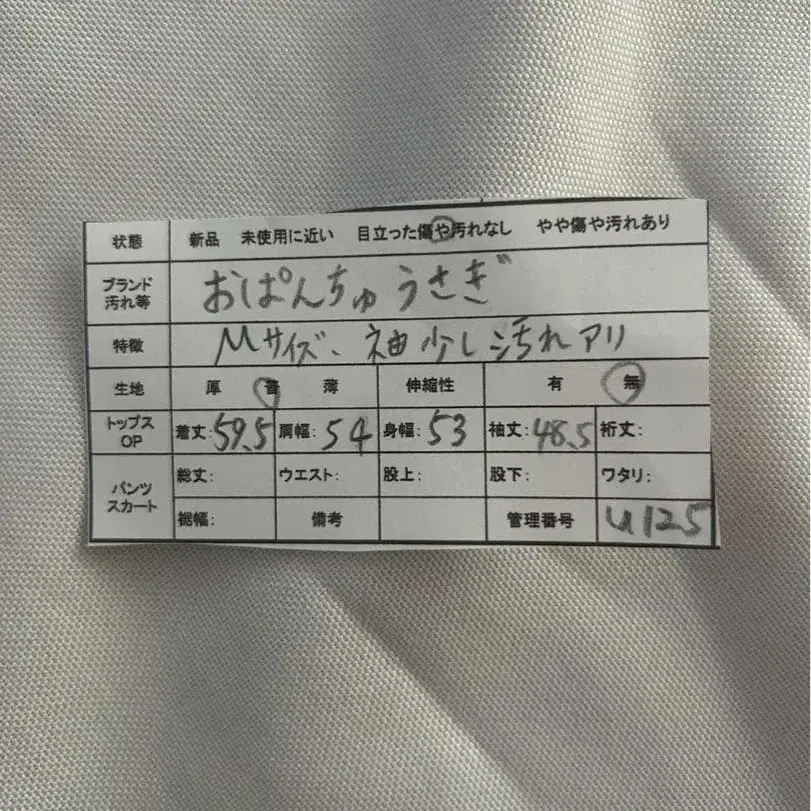 状態 新品 未使用に近い 目立った傷や汚れなし やや傷や汚れあり
ブランド 汚れ等 おぱんちゅうさぎ
特徴 Mサイズ、袖少し汚れアリ
生地 厚 普 薄 伸縮性 有 無
トップス OP 着丈:59.5 肩幅:54 身幅:53 袖丈:48.5 裄丈:
パンツ スカート 総丈: ウエスト: 股上: 股下: ワタリ:
裾幅: 備考 管理番号 u125